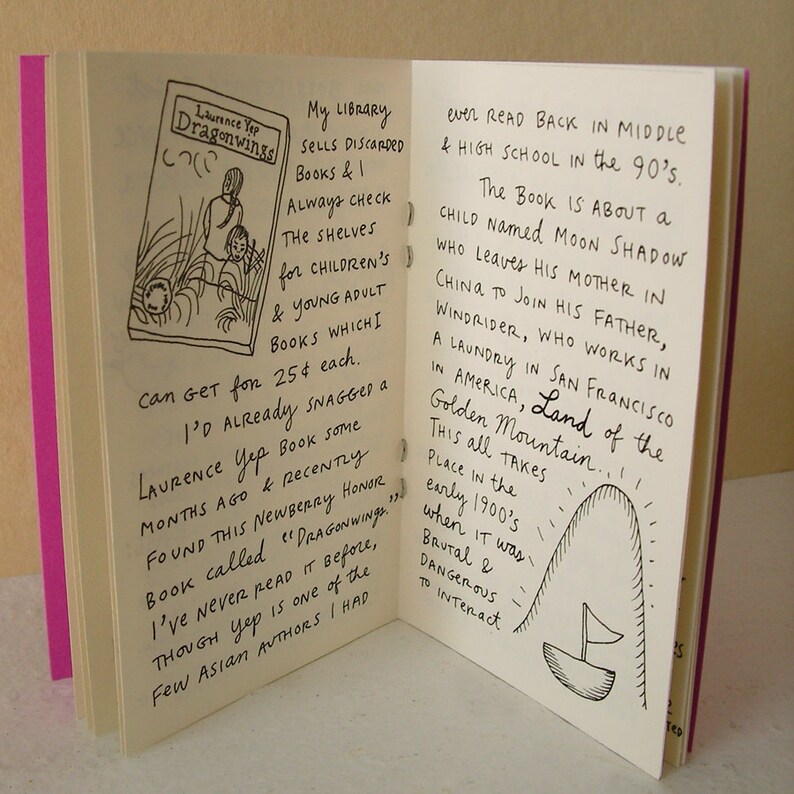 Laurence Yep
Dragonwings
My LIBRARY
SELLS DISCARDED
BOOKS & I
Always CHECK
THE SHELVES
for CHILDREN'S
& YOUNG ADULT
BOOKS WHICH I
can GET for 25¢ each.
I'D ALREADY SNAGGED a
LAURENCE Yep BOOK SOME
MONTHS AGO & RECENTLY
FOUND THIS NEWBERRY HONOR
BOOK called "DRAGONWINGS."
I'VE NEVER READ IT BEFORE,
THOUGH Yep IS ONE of the
FEW ASIAN AUTHORS I HAD
ever READ BACK IN MIDDLE
& HIGH SCHOOL IN the 90's.
The BOOK IS ABOUT a
CHILD NAMED MOON SHADOW
WHO LEAVES HIS MOTHER IN
CHINA TO JOIN HIS FATHER,
WINDRIDER, WHO WORKS IN
A LAUNDRY IN SAN FRANCISCO
IN AMERICA, Land of the
Golden Mountain...
THIS all TAKES
PLACE IN the
early 1900's
when IT was
BRUTAL &
DANGEROUS
TO INTERACT